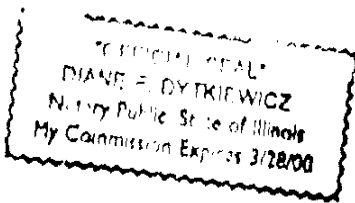 "OFFICIAL SEAL"
DIANE F. DYTKIEWICZ
Notary Public State of Illinois
My Commission Expires 3/28/00